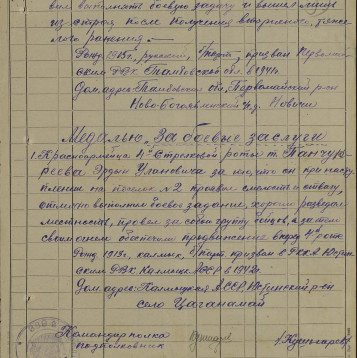 вил выполнять боевую задачу и вышел лишь
из строя после получения вторичного, тяже-
лого ранения —
Рожд. 1915г., русский, б/парт., призван Первомай-
ским РВК Тамбовской обл. в 1941г.
Дом. адрес: Тамбовская обл. Первомайский р-он
Ново-Богоявленский с/с д. Новички
Медалью "За боевые заслуги
1. Красноармейца 4й Стрелковой роты т.
Эрдни Улановича за то, что он при насту-
плении на поселок №2 проявил смелость и отвагу,
отлично выполнил боевое задание, хорошо разведал
местность, провел за собой группу бойцов, а затем
своим огнем обеспечил продвижение вперед 4й роте
Рожд. 1919г., калмык, б/парт. призван в РККА
ским РВК Калмыц. АССР в 1942г.
Дом. адрес: Калмыцкая АССР р-он
село Цаганаман
Командир полка
подполковник